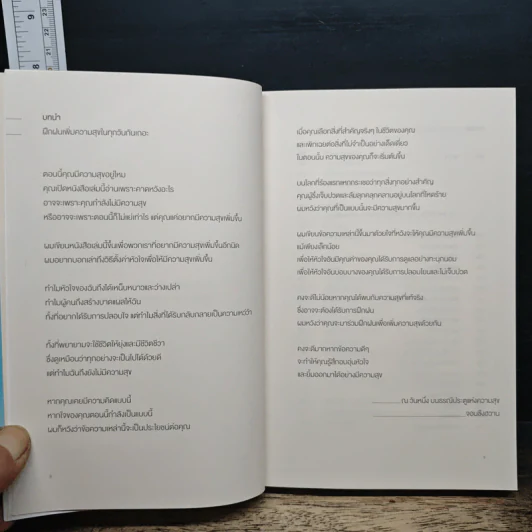 บทนำ
ฝึกฝนเพิ่มความสุขในทุกวันกันเถอะ
ตอนนี้คุณมีความสุขอยู่ไหม
คุณเปิดหนังสือเล่มนี้อ่านเพราะคาดหวังอะไร
อาจจะเพราะคุณกำลังไม่มีความสุข
หรืออาจจะเพราะตอนนี้ก็ไม่แย่เท่าไร แต่คุณแค่อยากมีความสุขเพิ่มขึ้น
ผมเขียนหนังสือเล่มนี้ขึ้นเพื่อพวกเราที่อยากมีความสุขเพิ่มขึ้นอีกนิด
ผมอยากบอกเล่าถึงวิธีตั้งค่าหัวใจเพื่อให้มีความสุขเพิ่มขึ้น
ทำไมหัวใจของฉันถึงได้เหน็บหนาวและว่างเปล่า
ทำไมผู้คนถึงสร้างบาดแผลให้ฉัน
ทั้งที่อยากได้รับการปลอบใจ แต่ทำไมสิ่งที่ได้รับกลับกลายเป็นความหว้าเหว่
ทั้งที่พยายามจะใช้ชีวิตให้ยุ่งและมีชีวิตชีวา
ซึ่งดูเหมือนว่าทุกอย่างจะเป็นไปได้ด้วยดี
แต่ทำไมฉันถึงยังไม่มีความสุข
หากคุณเคยมีความคิดแบบนี้
หากใจของคุณตอนนี้กำลังเป็นแบบนี้
ผมก็หวังว่าข้อความเหล่านี้จะเป็นประโยชน์ต่อคุณ
เมื่อคุณเลือกสิ่งที่สำคัญจริงๆ ในชีวิตของคุณ
และเพิกเฉยต่อสิ่งที่ไม่จำเป็นอย่างเด็ดเดี่ยว
ในตอนนั้น ความสุขของคุณก็จะเริ่มต้นขึ้น
บนโลกที่ร้องแรกแหกกระเชอว่าทุกสิ่งทุกอย่างสำคัญ
คุณผู้ซึ่งเจ็บปวดและล้มลุกคลุกคลานอยู่บนโลกที่โหดร้าย
ผมหวังว่าคุณที่เป็นแบบนั้นจะมีความสุขมากขึ้น
ผมเขียนข้อความเหล่านี้ขึ้นมาด้วยใจที่หวังจะให้คุณมีความสุขเพิ่มขึ้น
แม้เพียงเล็กน้อย
เพื่อให้หัวใจอันมีคุณค่าของคุณได้รับการดูแลอย่างทะนุถนอม
เพื่อให้หัวใจอันบอบบางของคุณได้รับการปลอบโยนและไม่เจ็บปวด
คงจะดีไม่น้อยหากคุณได้พบกับความสุขที่แท้จริง
ซึ่งอาจจะต้องได้รับการฝึกฝน
ผมหวังว่าคุณจะมาร่วมฝึกฝนเพื่อเพิ่มความสุขด้วยกัน
คงจะดีมากหากข้อความดีๆ
จะทำให้คุณรู้สึกอบอุ่นหัวใจ
และยิ้มออกมาได้อย่างมีความสุข
ณ วันหนึ่ง บนธรณีประตูแห่งความสุข
จอนซึงฮวาน